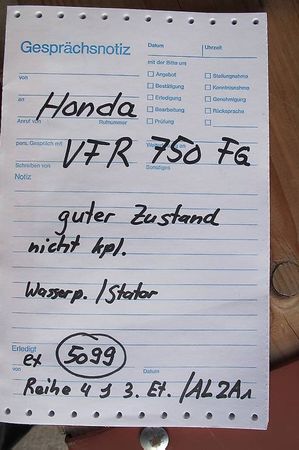 Gesprächsnotiz
Datum Uhrzeit
mit der Bitte um
von
Angebot Stellungnahme
Bestätigung Kenntnisnahme
an
Erledigung Genehmigung
Honda
Bearbeitung Rücksprache
Anruf von Rufnummer
Prüfung
pers. Gespräch mit
VFR 750 FG
Schreiben von Sonstiges
Notiz
guter Zustand
nicht kpl.
Wasserp. / Stator
Erledigt
ex 5099
von Datum
Reihe 4 3. Et. /AL2A1